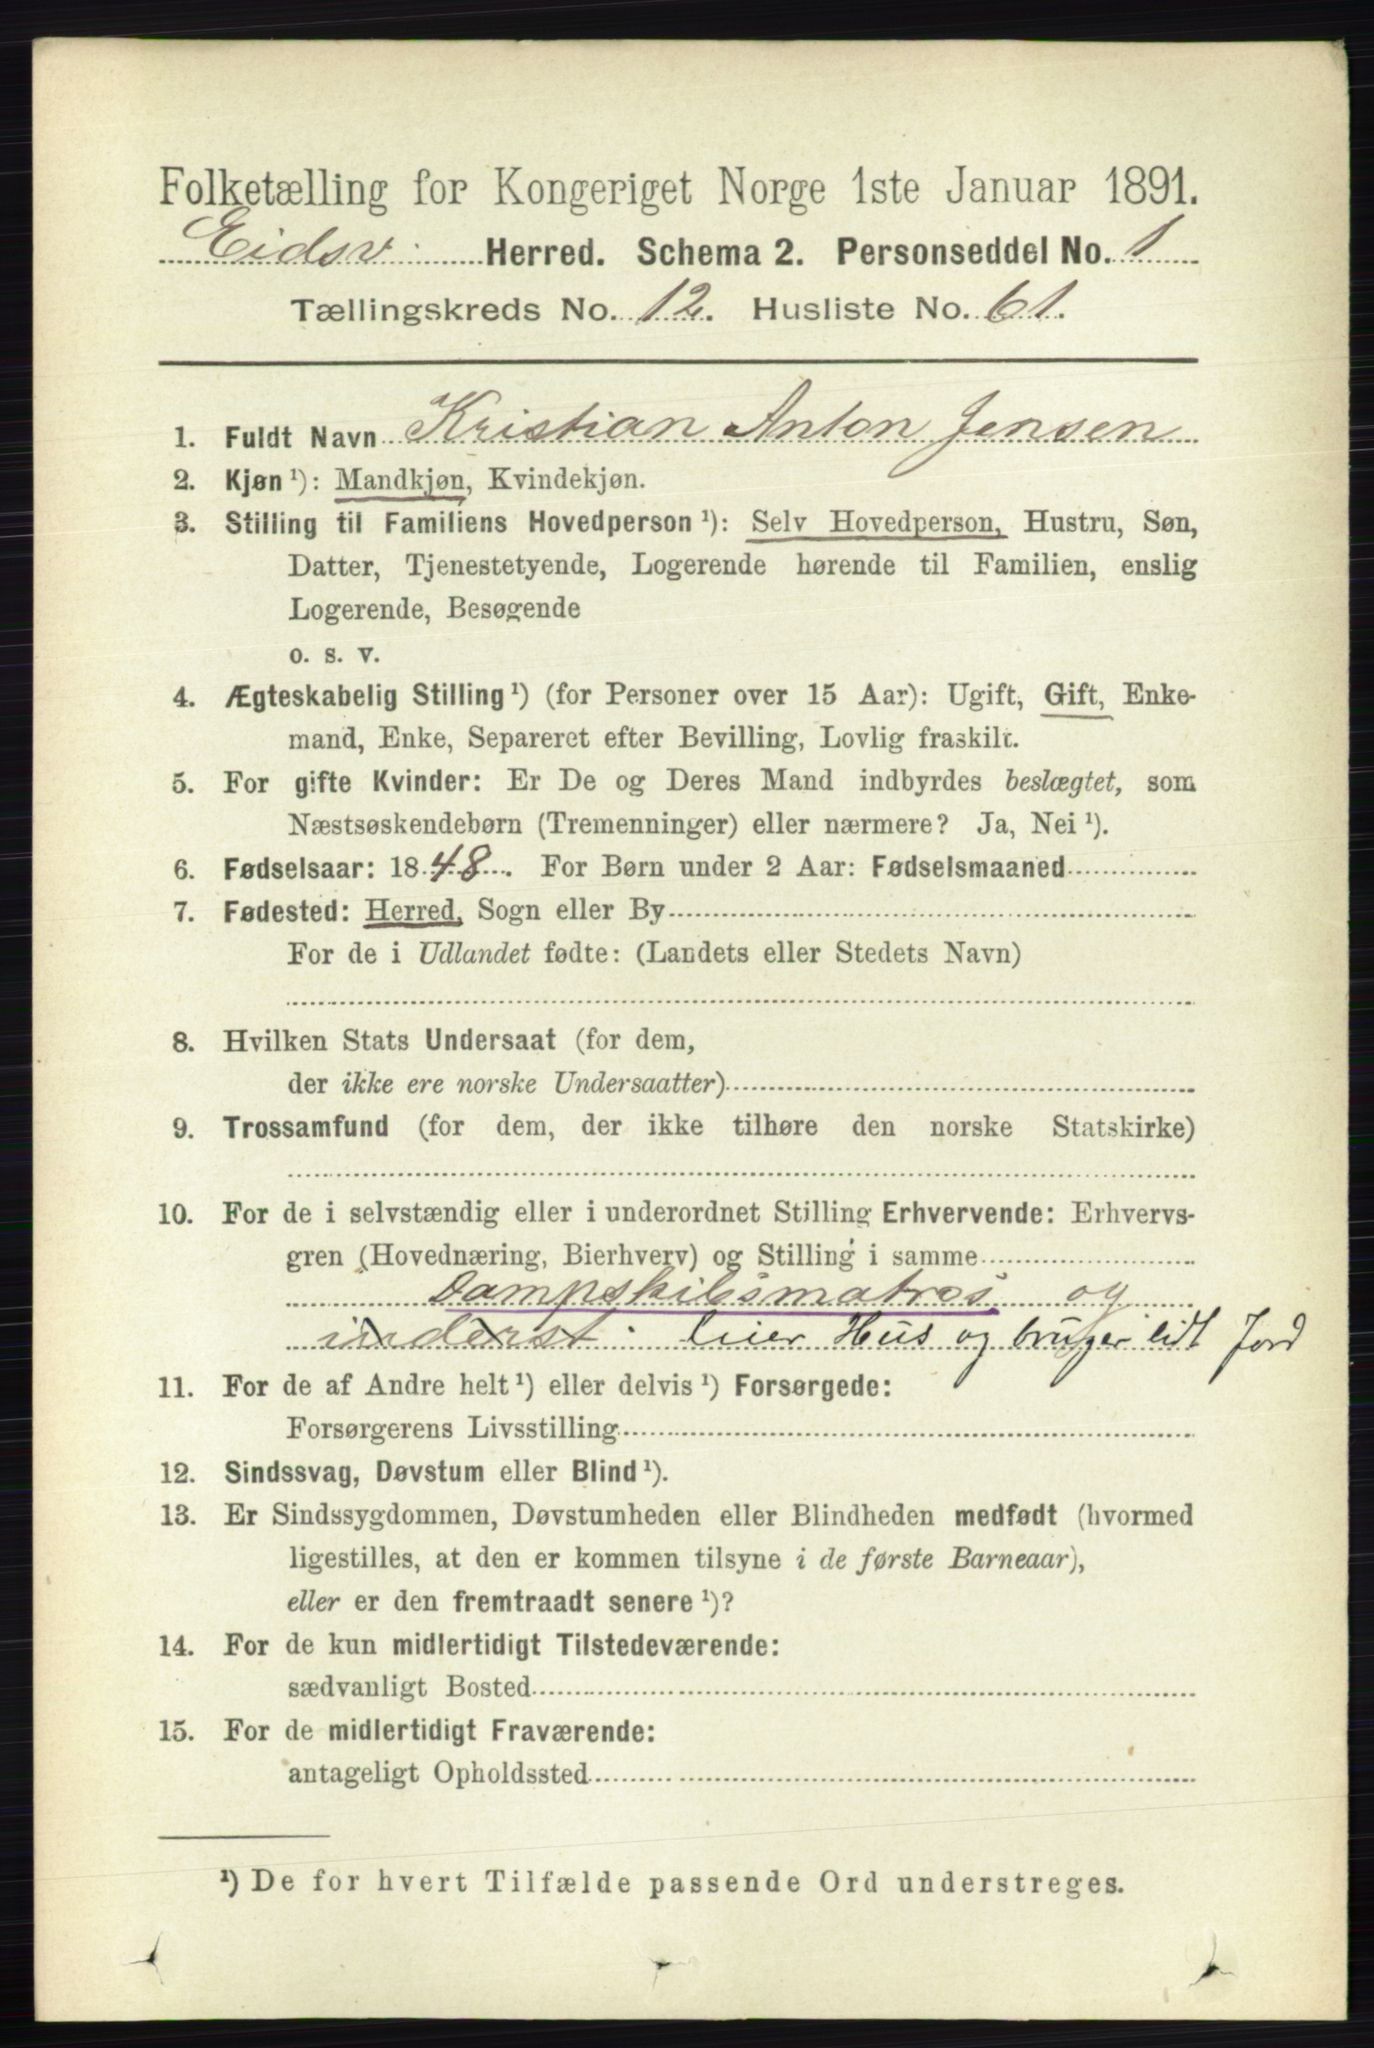 Folketælling for Kongeriget Norge 1ste Januar 1891.
Eidsv. Herred. Schema 2. Personseddel No. 1
Tællingskreds No. 12. Husliste No. 61.
1. Fuldt Navn Kristian Anton Jensen
2. Kjøn ¹): Mandkjøn, Kvindekjøn.
3. Stilling til Familiens Hovedperson ¹): Selv Hovedperson, Hustru, Søn,
Datter, Tjenestetyende, Logerende hørende til Familien, enslig
Logerende, Besøgende
o. s. v.
4. Ægteskabelig Stilling ¹) (for Personer over 15 Aar): Ugift, Gift, Enke-
mand, Enke, Separeret efter Bevilling, Lovlig fraskilt.
5. For gifte Kvinder: Er De og Deres Mand indbyrdes beslægtet, som
Næstsøskendebørn (Tremenninger) eller nærmere? Ja, Nei ¹).
6. Fødselsaar: 1848. For Børn under 2 Aar: Fødselsmaaned
7. Fødested: Herred, Sogn eller By
For de i Udlandet fødte: (Landets eller Stedets Navn)
8. Hvilken Stats Undersaat (for dem,
der ikke ere norske Undersaatter)
9. Trossamfund (for dem, der ikke tilhøre den norske Statskirke)
10. For de i selvstændig eller i underordnet Stilling Erhvervende: Erhvervs-
gren (Hovednæring, Bierhverv) og Stilling i samme
Dampskibsmatros og
inderst: leier Hus og bruger lidt Jord
11. For de af Andre helt ¹) eller delvis ¹) Forsørgede:
Forsørgerens Livsstilling
12. Sindssvag, Døvstum eller Blind ¹).
13. Er Sindssygdommen, Døvstumheden eller Blindheden medfødt (hvormed
ligestilles, at den er kommen tilsyne i de første Barneaar),
eller er den fremtraadt senere ¹)?
14. For de kun midlertidigt Tilstedeværende:
sædvanligt Bosted
15. For de midlertidigt Fraværende:
antageligt Opholdssted
¹) De for hvert Tilfælde passende Ord understreges.